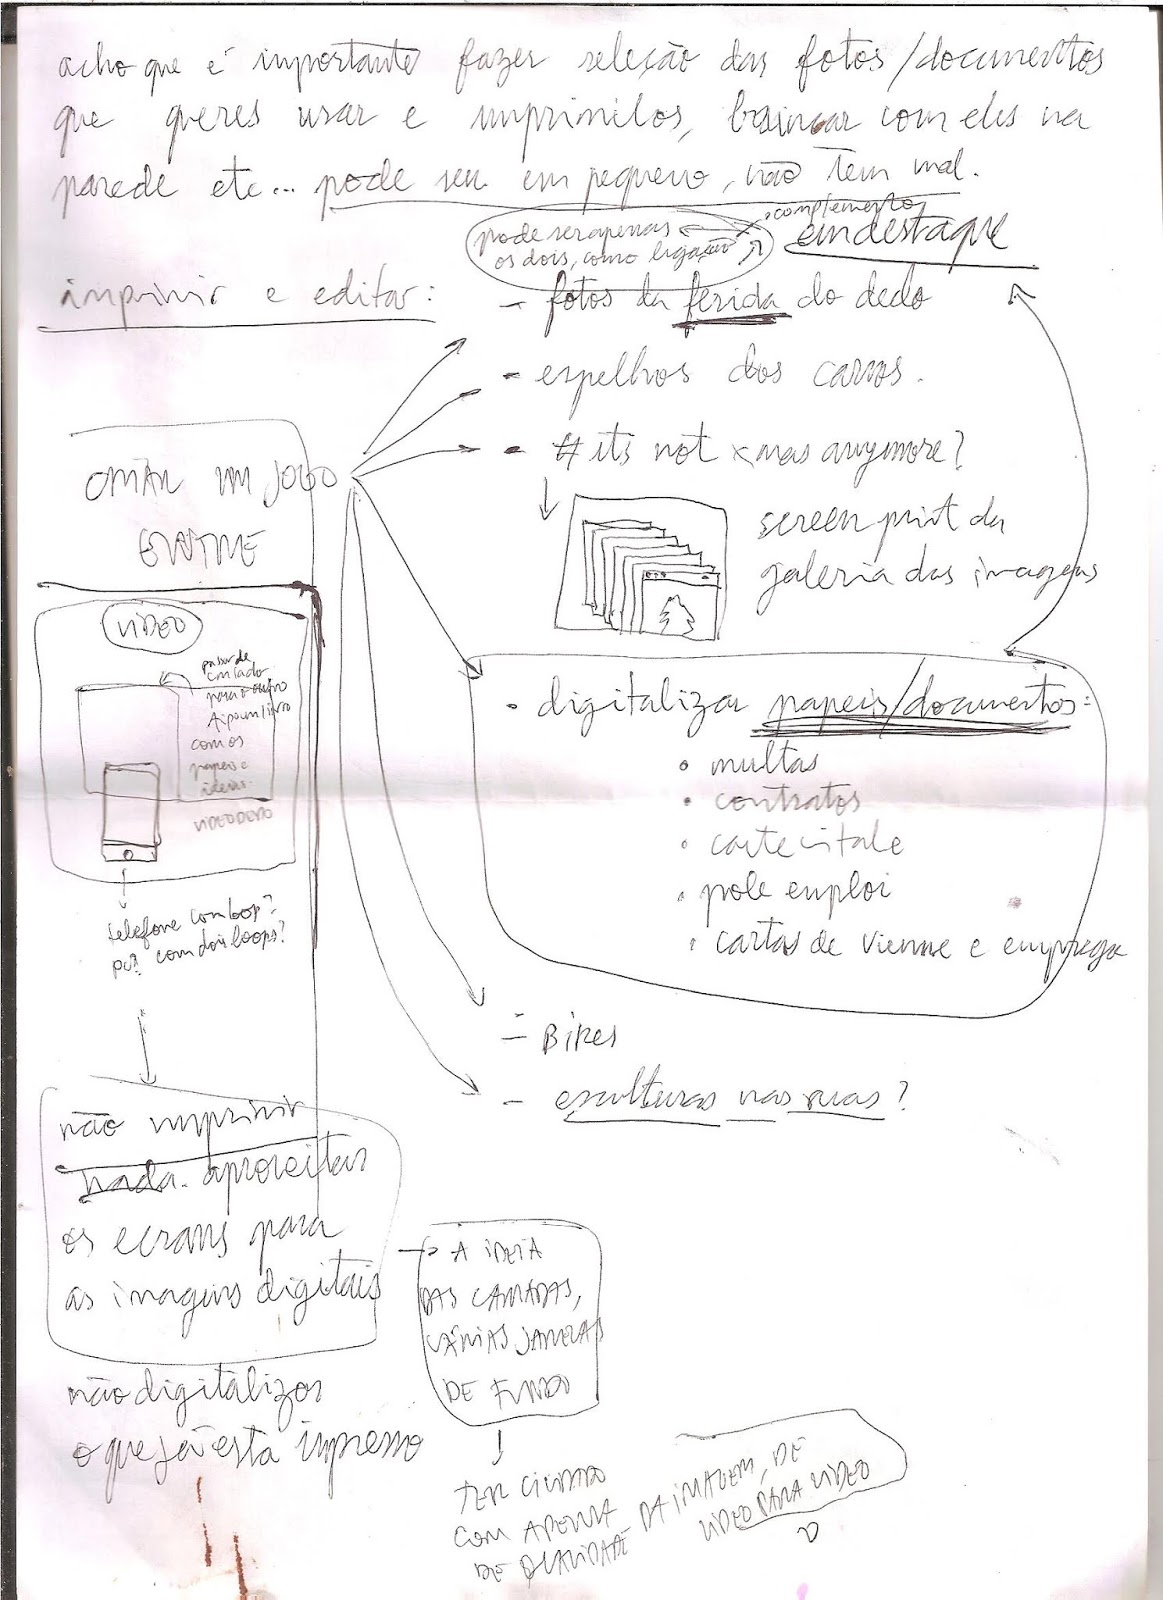 acho que é importante fazer seleção das fotos/documentos
que queres usar e imprimilos, brincar com eles na
parede etc... pode ser em pequeno, não tem mal.
complemento
pode ser apenas
os dois, como ligação
em destaque
imprimir e editar:
- fotos da ferida do dedo
- espelhos dos carros.
- # its not xmas anymore?
screen print da
galeria das imagens
UM JOGO
VIDEO
passar de
um lado
para o outro
com os
papeis e
ideias.
VIDEO DEDO
telefone com loop?
com dois loops?
• digitalizar papeis/documentos:
• multas
• contratos
• carte vitale
• pole emploi
• cartas de vienne e emprego
= BIKES
- esculturas nas ruas?
não imprimir
nada. aproveitar
os ecrans para
as imagens digitais
→ A IDEIA
DAS CAMADAS,
VÁRIAS JANELAS
DE FUNDO
não digitalizar
o que já está impresso
TER CUIDADO
COM A PERDA
DE QUALIDADE DA IMAGEM, DE
VIDEO PARA VIDEO